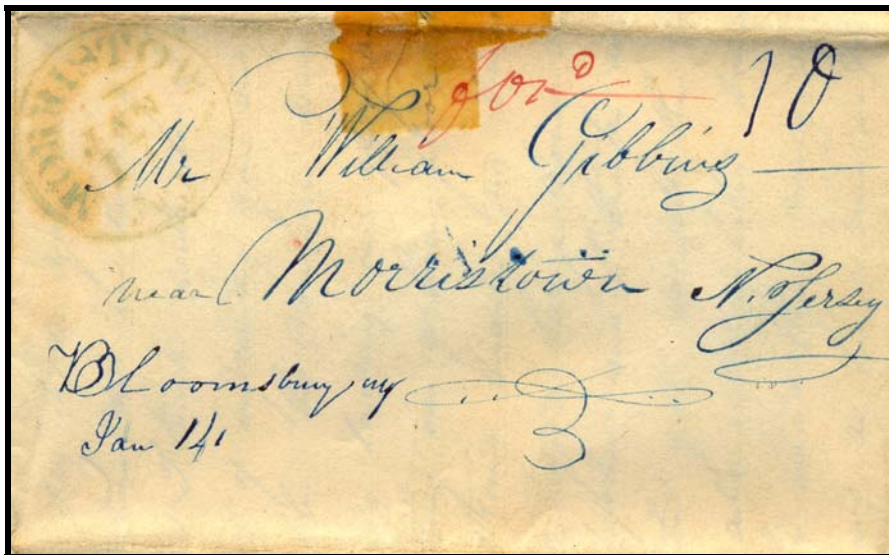 MORRISTOW
JAN
for^d 10
Mr William Gibbins
near Morristown N. Jersey
Bloomsbury NJ
Jan 14